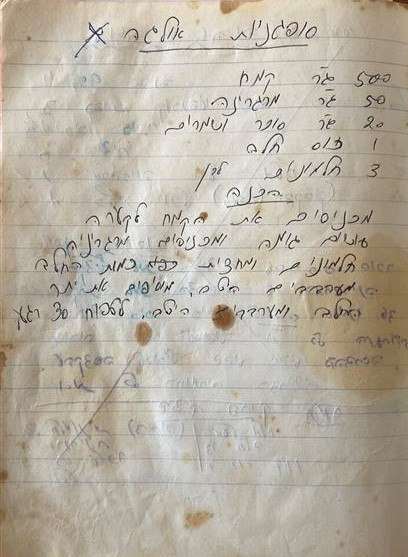 סופגניות אולגה
500 גר קמח
50 גר מרגרינה
20 גר סוכר ושמרים
1 כוס חלב
3 חלמונים
הכנה
מכניסים את הקמח לקערה
עושים גומה ומכניסים מרגרינה
חלמונים ומחצית כמות החלב
מערבבים היטב, מוסיפים את יתר
החלב ומערבבים היטב לתפוח 30 רגע